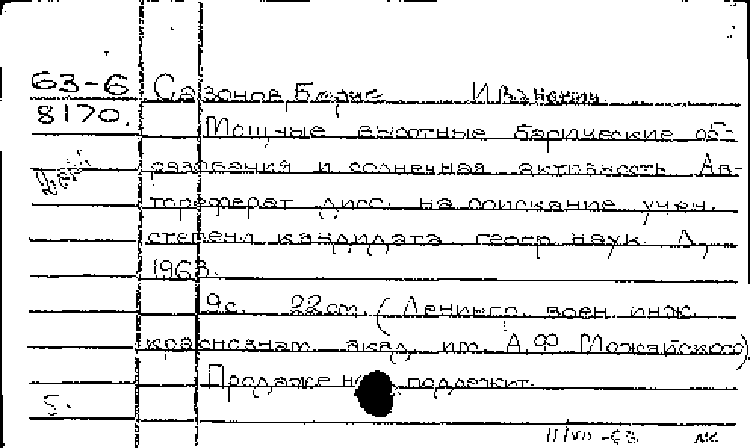 63-6 Сазонов, Борис Иванович
8170.
Мощные высотные барические об-
разования и солнечная активность. Ав-
тореферат дисс. на соискание учен.
степени кандидата геогр. наук. Л.,
1963.
9 с. 22 см. (Ленингр. воен. инж.
краснознам. акад. им. А.Ф. Можайского).
Продаже не подлежит.
5.
11/VII-63